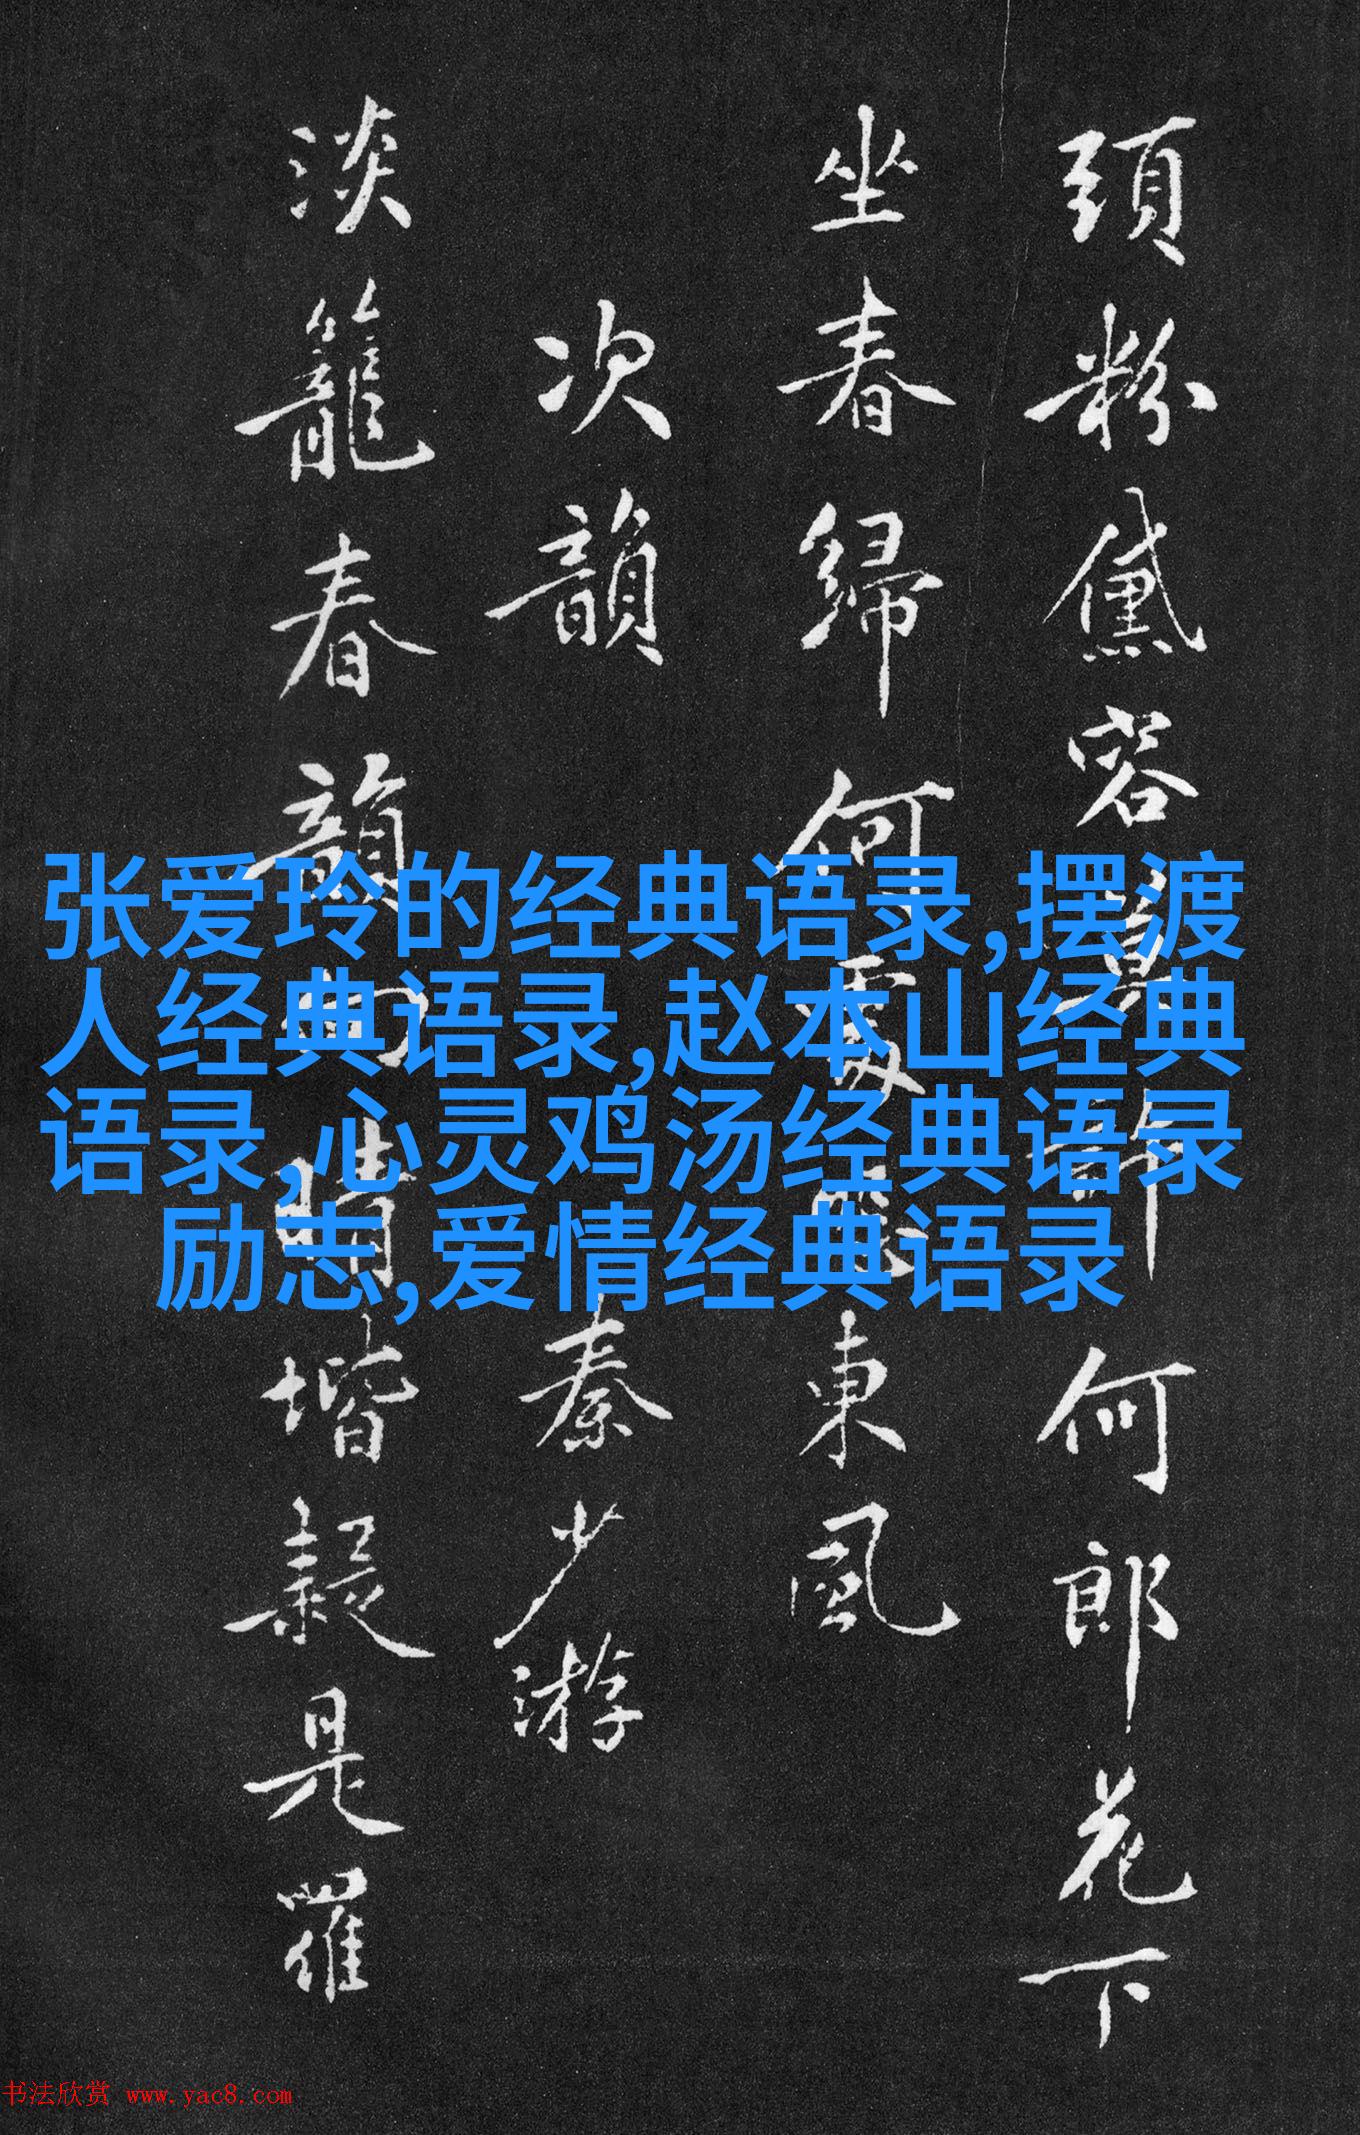 頭粉黛容何郎花下
坐春歸何處東風
次韻秦少游
淡籠春韻晴堦疑是羅
张爱玲的经典语录,摆渡
人经典语录,赵本山经典
语录,心灵鸡汤经典语录
励志,爱情经典语录
书法欣赏 www.yac8.com